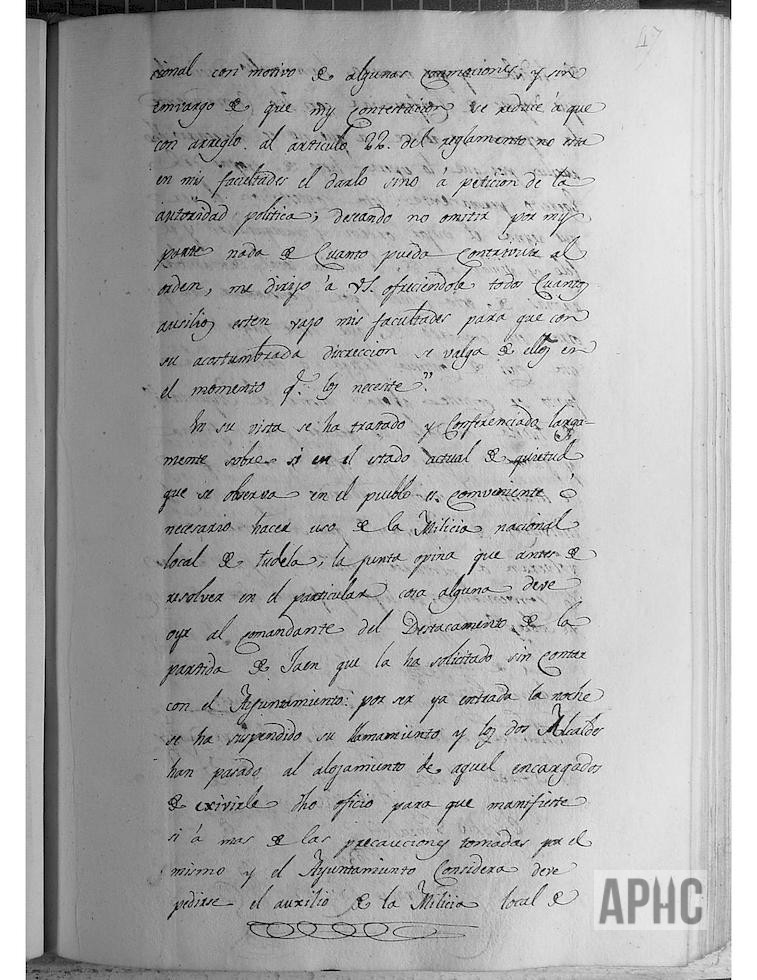 47
cional con motivo de algunas conmociones, y sin
embargo de que my Contestacion se reduce á que
con arreglo. al articulo 22. del reglamento no esta
en mis facultades el darlo sino á peticion de la
autoridad politica; deseando no omitir por my
parte nada de Cuanto pueda Contrivuir al
orden, me dirijo á VS. ofreciendole todos Cuantos
ausilios esten vajo mis facultades para que con
su acostumbrada discreccion se valga de ellos en
el momento q.e los necesite".
En su vista se ha tratado y Conferenciado larga-
mente sobre si en el estado actual de quietud
que se observa en el pueblo es conveniente ó
necesario hacer uso de la Milicia nacional
local de tudela; la junta opina que antes de
resolver en el particular cosa alguna deve
oyr al comandante del Destacamento de la
partida de Jaen que la ha solicitado sin Contar
con el Ayuntamiento: por ser ya entrada la noche
se ha suspendido su llamamiento y los dos Alcaldes
han pasado al alojamiento de aquel encargados
de exivirle dho oficio para que manifieste
si á mas de las precauciones tomadas por el
mismo y el Ayuntamiento Considera deve
pedirse el auxilio de la Milicia local de
APHC